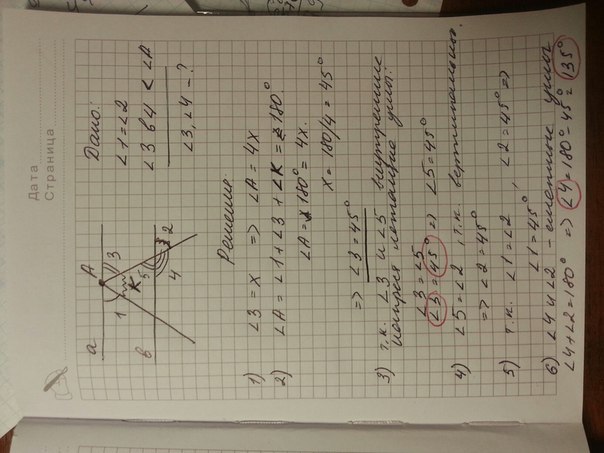 Дата
Страница
a
A
1
3
К
5
2
в
4
Дано:
∠1=∠2
∠3 в 4 < ∠A
∠3, ∠4 - ?
Решение
1) ∠3 = x => ∠A = 4x
2) ∠A = ∠1 + ∠3 + ∠К = 180°
∠A = 180° = 4x
x = 180/4 = 45°
=> ∠3 = 45°
3) т.к. ∠3 и ∠5 внутренние
накрест лежащие углы:
∠3 = ∠5
∠3 = 45° => ∠5 = 45°
4) ∠5 = ∠2, т.к. вертикальные.
=> ∠2 = 45°
5) т.к. ∠1 = ∠2, ∠2 = 45° =>
∠1 = 45°
6) ∠4 и ∠2 - смежные углы
∠4 + ∠2 = 180° => ∠4 = 180° - 45° = 135°